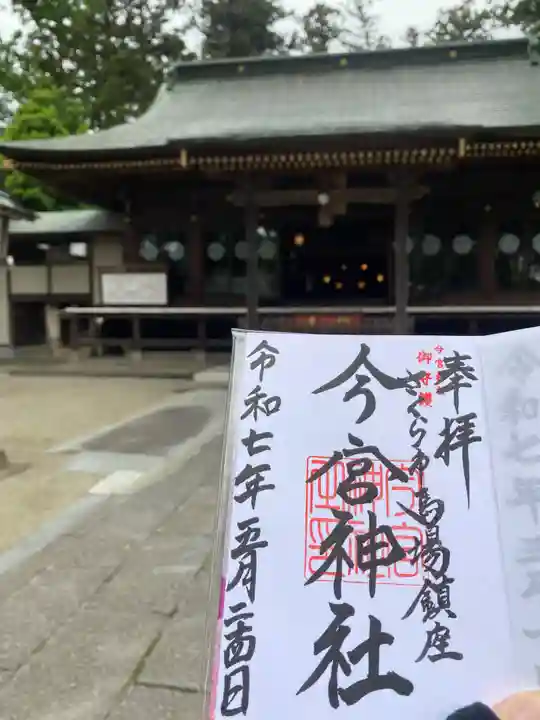 奉拝
さくら市馬場鎮座
今宮神社
令和七年五月二十四日